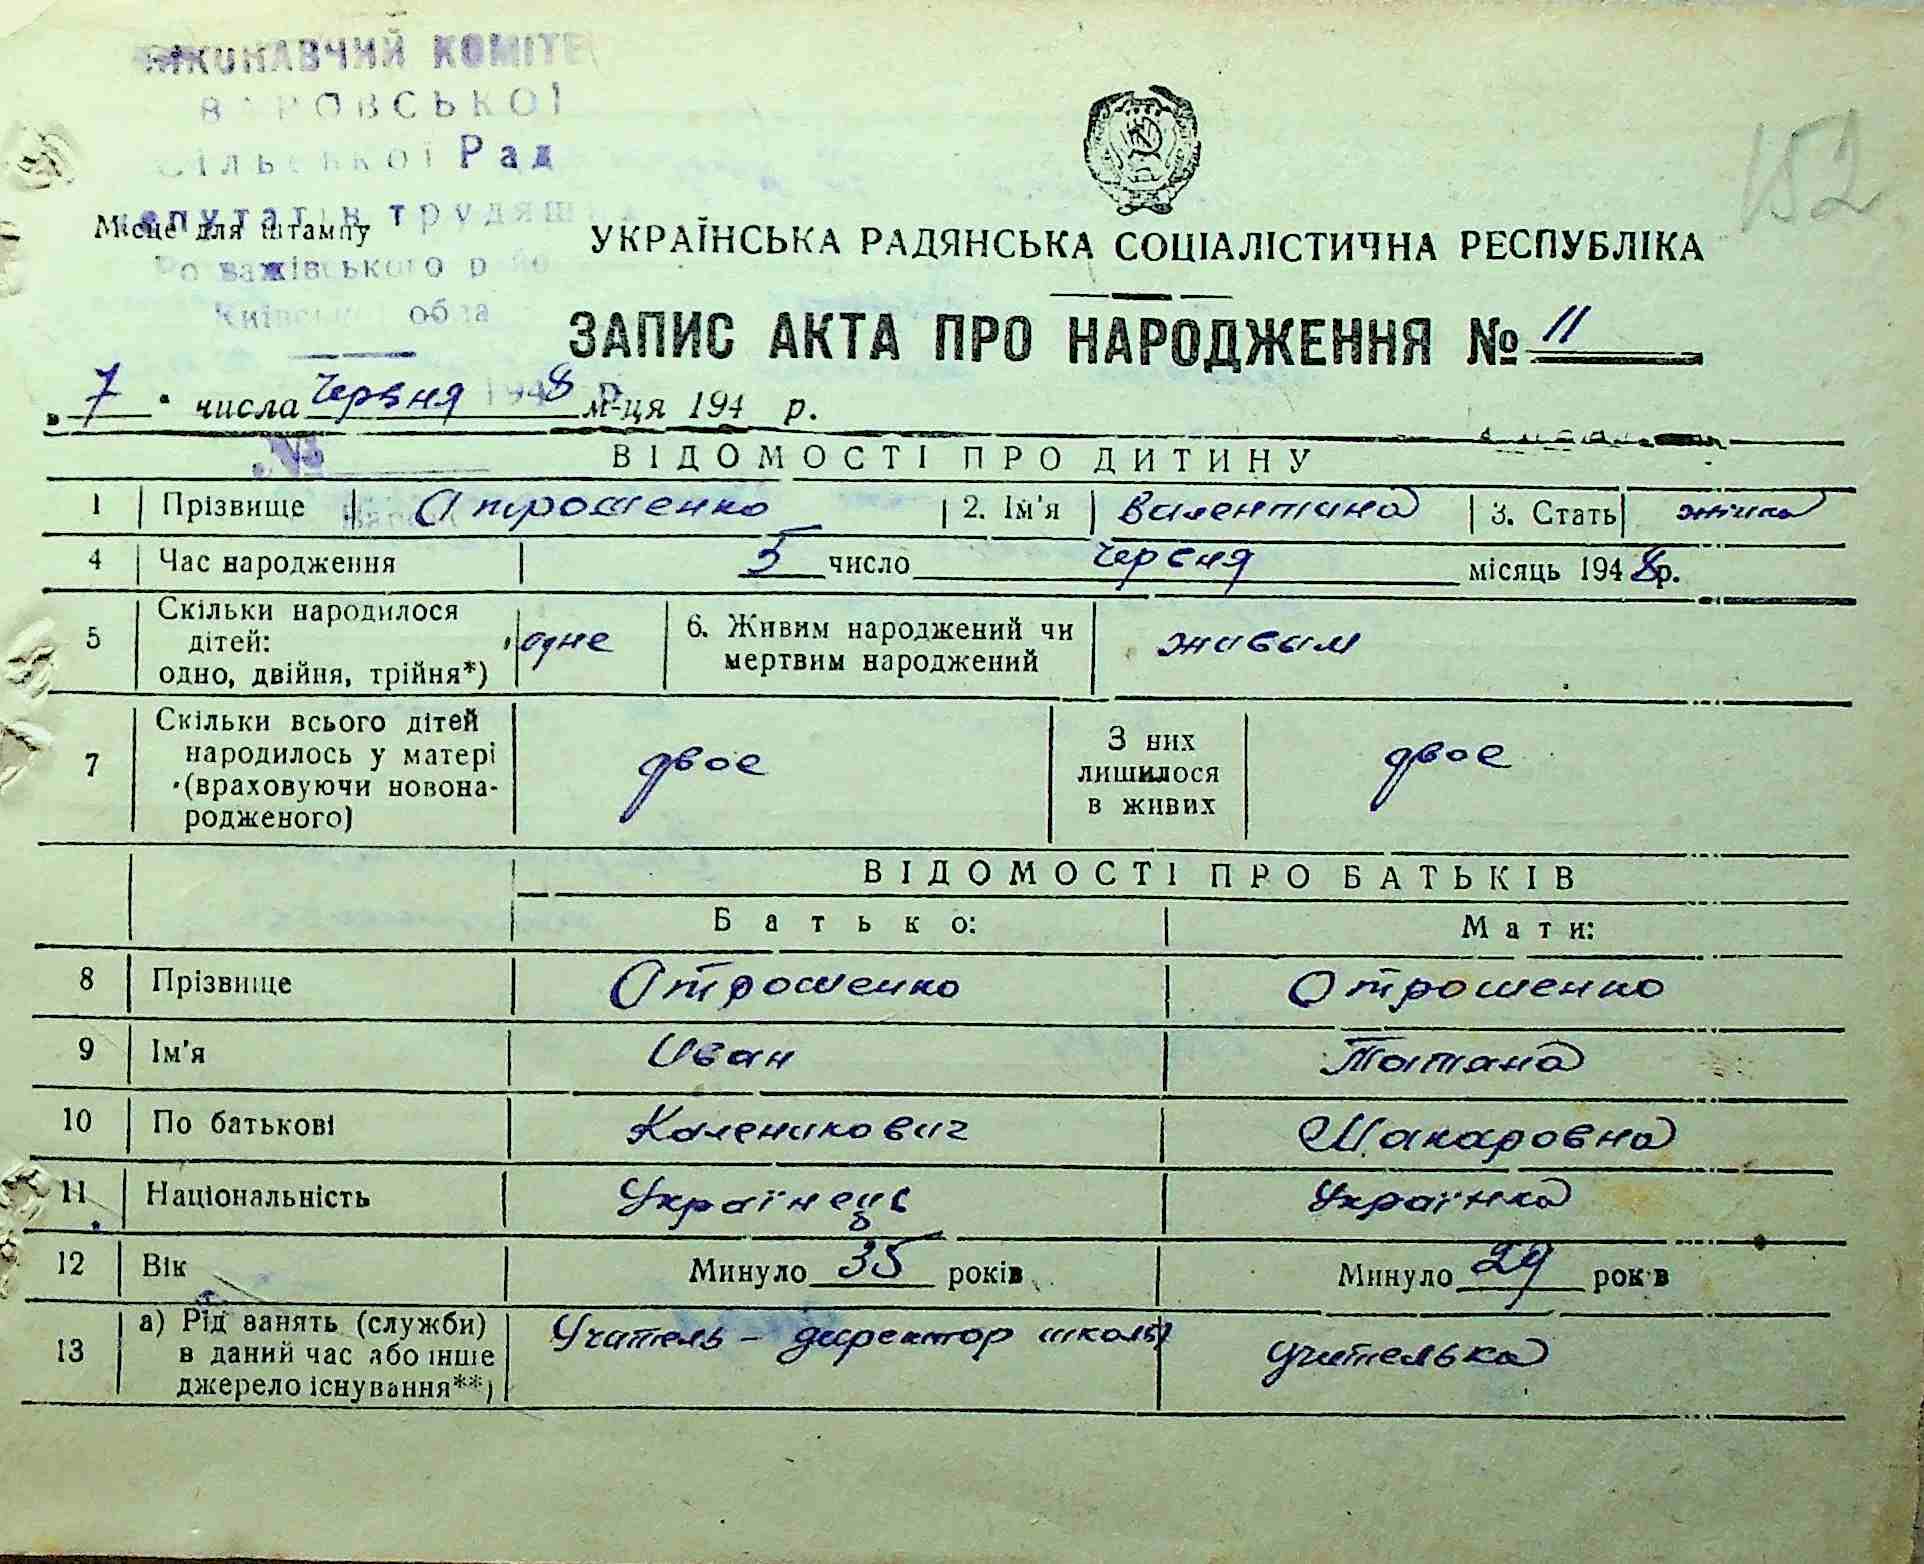 ВИКОНАВЧИЙ КОМІТЕ
РОВСЬКОЇ
Сільської Рад
депутатів трудящих
Місце для штампу
Розважівського району
Київської обла
152
УКРАЇНСЬКА РАДЯНСЬКА СОЦІАЛІСТИЧНА РЕСПУБЛІКА
ЗАПИС АКТА ПРО НАРОДЖЕННЯ № 11
„7“ числа Червня 1948 м-ця 194 р.
№
ВІДОМОСТІ ПРО ДИТИНУ
1 Прізвище Отрошенко 2. Ім'я Валентина 3. Стать жіноча
4 Час народження 5 число Червня місяць 1948 р.
5 Скільки народилося дітей: одно, двійня, трійня*) одне 6. Живим народжений чи мертвим народжений живым
7 Скільки всього дітей народилось у матері (враховуючи новонародженого) двое З них лишилося в живих двое
ВІДОМОСТІ ПРО БАТЬКІВ
Батько: Мати:
8 Прізвище Отрошенко Отрошенко
9 Ім'я Иван Татяна
10 По батькові Каленикович Макаровна
11 Національність Українець Українка
12 Вік Минуло 35 років Минуло 29 років
13 а) Рід занять (служби) в даний час або інше джерело існування**) Учитель - директор школы учителька